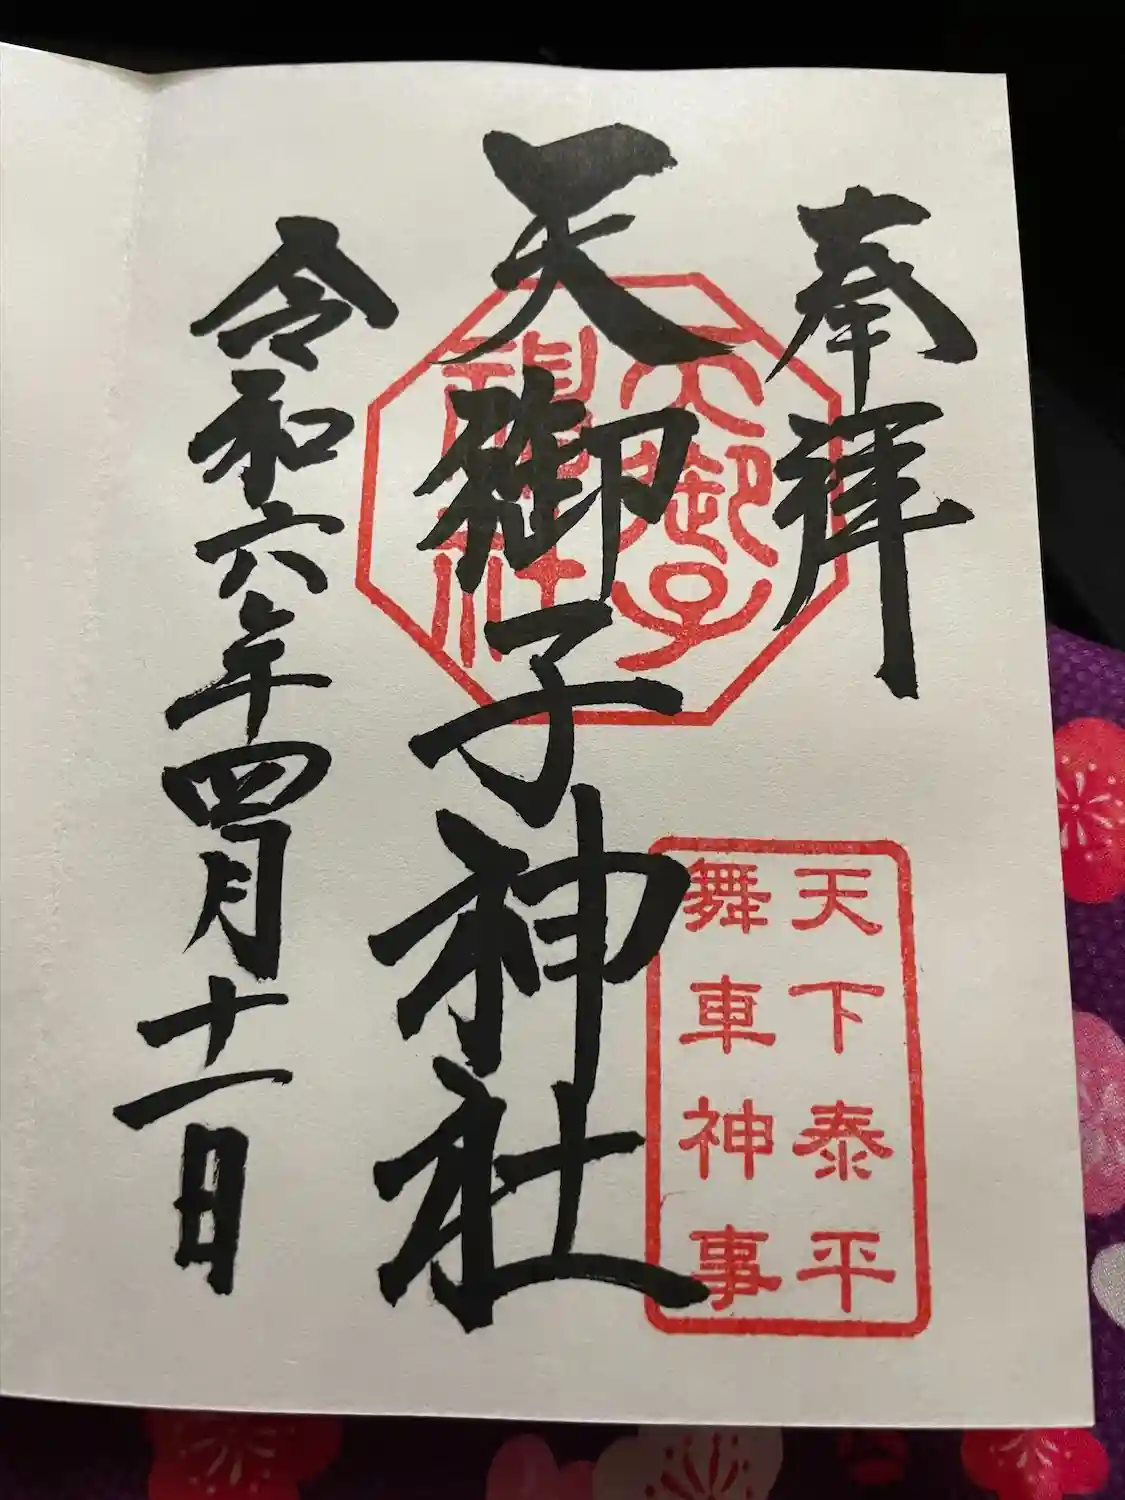 奉拝
天御子神社
天御子
神社
天下泰平
舞車神事
令和六年四月十一日